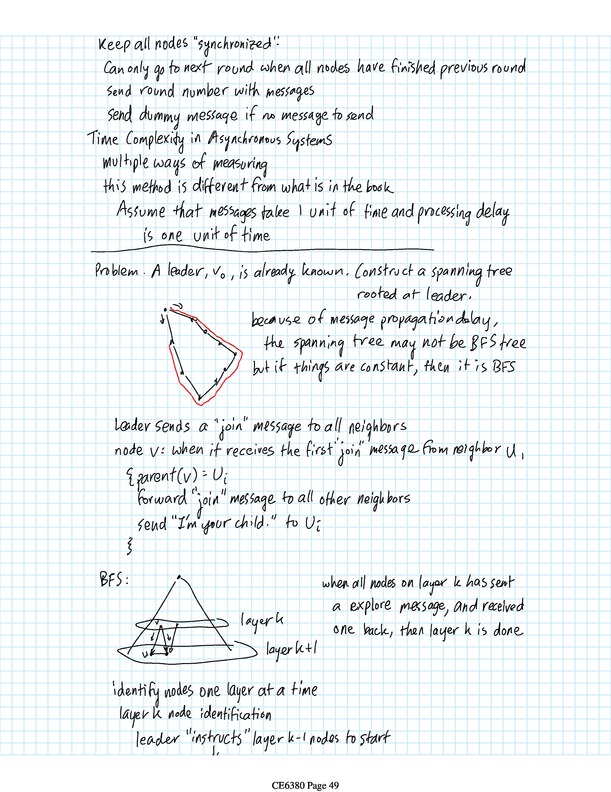 Keep all nodes "synchronized":
Can only go to next round when all nodes have finished previous round
send round number with messages
send dummy message if no message to send
Time Complexity in Asynchronous Systems
multiple ways of measuring
this method is different from what is in the book
Assume that messages take 1 unit of time and processing delay
is one unit of time
Problem. A leader, v0, is already known. Construct a spanning tree
rooted at leader.
because of message propagation delay,
the spanning tree may not be BFS tree
but if things are constant, then it is BFS
Leader sends a "join" message to all neighbors
node v: when it receives the first "join" message from neighbor Ui
{ parent(v) = Ui
forward "join" message to all other neighbors
send "I'm your child." to Ui
}
BFS:
when all nodes on layer k has sent
a explore message, and received
one back, then layer k is done
layer k
layer k+1
identify nodes one layer at a time
layer k node identification
leader "instructs" layer k-1 nodes to start
CE6380 Page 49